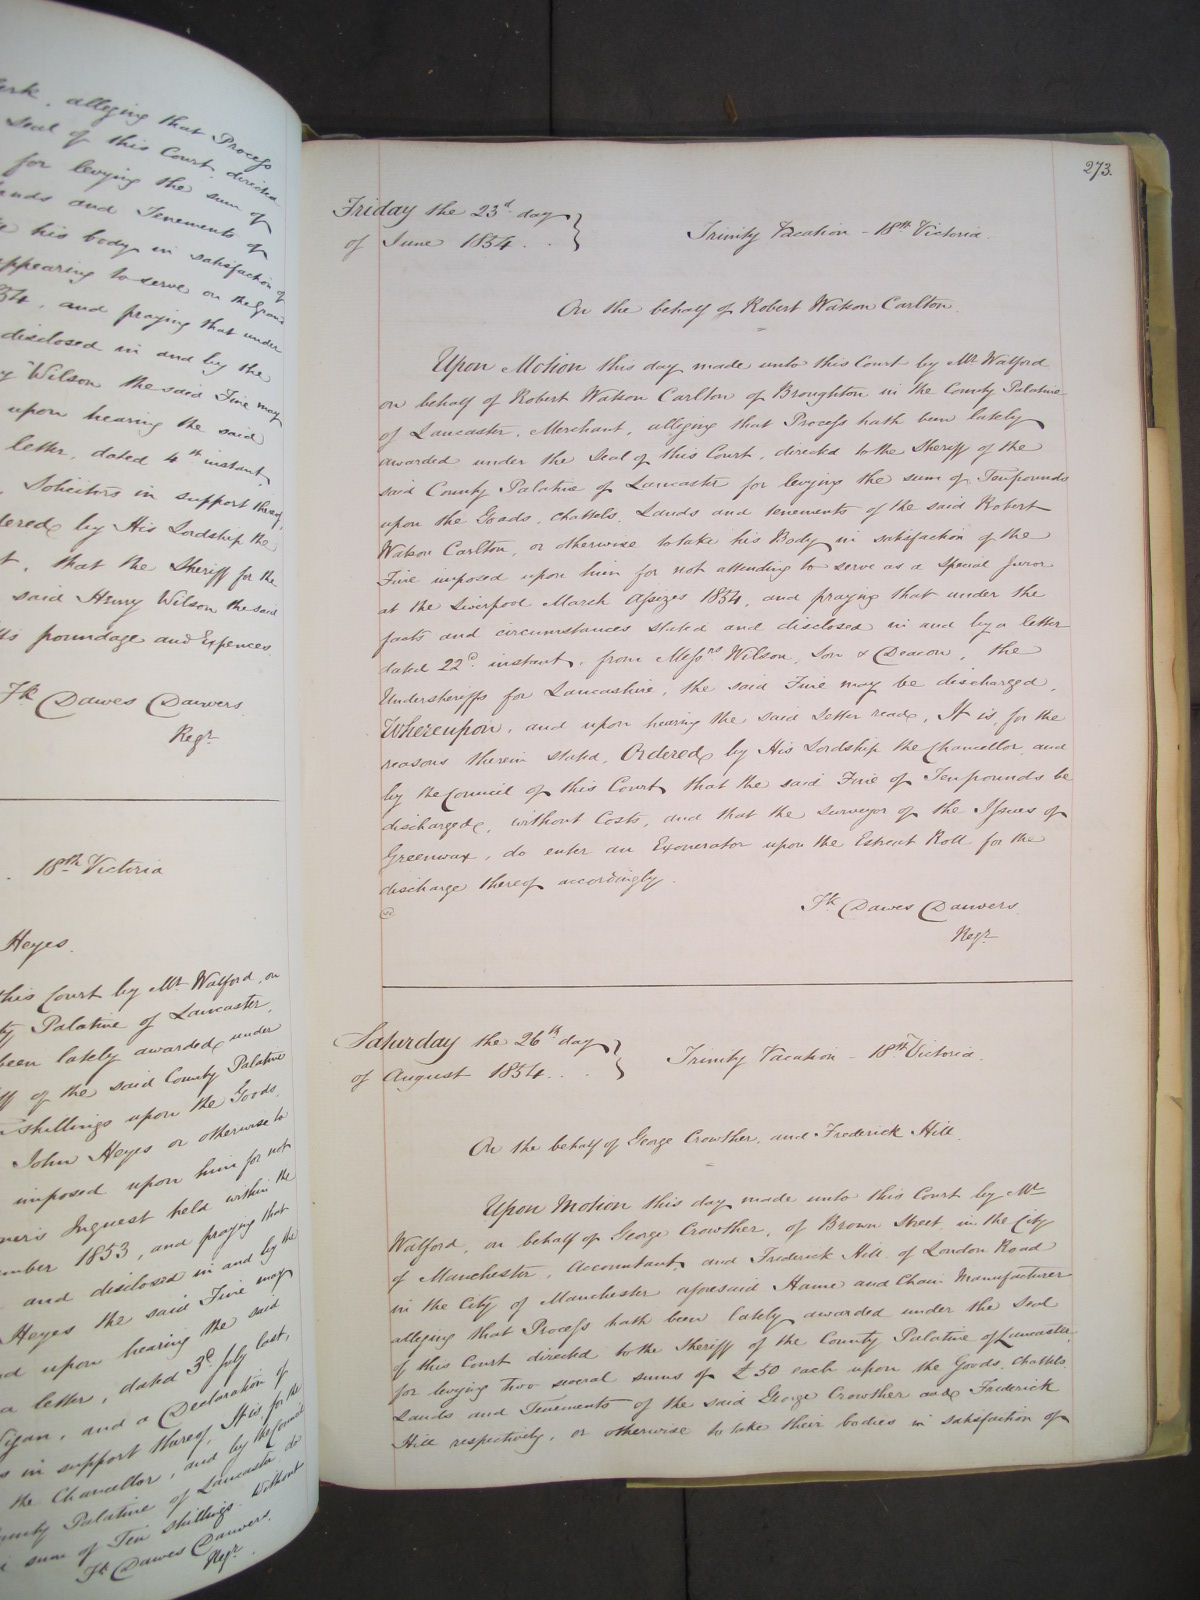 erk, alleging that Process
Seal of this Court, directed
for levying the sum of
ands and Tenements of
e his body in satisfaction of
ppearing to serve on the Grand
54, and praying that under
disclosed in and by the
y Wilson the said Fine may
upon hearing the said
letter, dated 4th instant,
Solicitors in support thereof,
dered by His Lordship the
t, that the Sheriff for the
said Henry Wilson the said
his poundage and Expences.
Fk Dawes Danvers
Regr
18th Victoria
Heyes.
this Court by Mr Walford, on
ty Palatine of Lancaster,
been lately awarded under
iff of the said County Palatine
n shillings upon the Goods,
John Heyes or otherwise to
imposed upon him for not
ner's Inquest held within the
ember 1853, and praying that
and disclosed in and by the
Heyes the said Fine may
nd upon hearing the said
a letter, dated 3d July last,
Wigan, and a Declaration of
s in support thereof, It is, for the
the Chancellor, and by the Council
ounty Palatine of Lancaster do
sum of Ten shillings without
Fk Dawes Danvers.
Regr.
273.
Friday the 23d day
of June 1854. .
Trinity Vacation - 18th Victoria.
On the behalf of Robert Watson Carlton.
Upon Motion this day made unto this Court by Mr Walford
on behalf of Robert Watson Carlton of Broughton in the County Palatine
of Lancaster, Merchant, alleging that Process hath been lately
awarded under the Seal of this Court, directed to the Sheriff of the
said County Palatine of Lancaster for levying the sum of Ten pounds
upon the Goods, Chattels, Lands and tenements of the said Robert
Watson Carlton, or otherwise to take his Body in satisfaction of the
Fine imposed upon him for not attending to serve as a Special Juror
at the Liverpool March Assizes 1854, and praying that under the
facts and circumstances stated and disclosed in and by a letter
dated 22d instant, from Messrs Wilson, Son & Deacon, the
Undersheriffs for Lancashire, the said Fine may be discharged,
Whereupon, and upon hearing the said Letter read, It is, for the
reasons therein stated, Ordered by His Lordship the Chancellor and
by the Council of this Court, that the said Fine of Ten pounds be
discharged, without Costs, and that the Surveyor of the Issues of
Greenwax, do enter an Exonerator upon the Estreat Roll for the
discharge thereof accordingly.
Fk Dawes Danvers
Regr
Saturday the 26th day
of August 1854. . .
Trinity Vacation - 18th Victoria.
On the behalf of George Crowther, and Frederick Hill.
Upon Motion this day made unto this Court by Mr
Walford, on behalf of George Crowther, of Brown Street, in the City
of Manchester, Accountant, and Frederick Hill of London Road
in the City of Manchester aforesaid Hame and Chain Manufacturer
alleging that Process hath been lately awarded under the Seal
of this Court directed to the Sheriff of the County Palatine of Lancaster,
for levying two several sums of £50 each upon the Goods, Chattels,
Lands and Tenements of the said George Crowther and Frederick
Hill respectively, or otherwise to take their bodies in satisfaction of